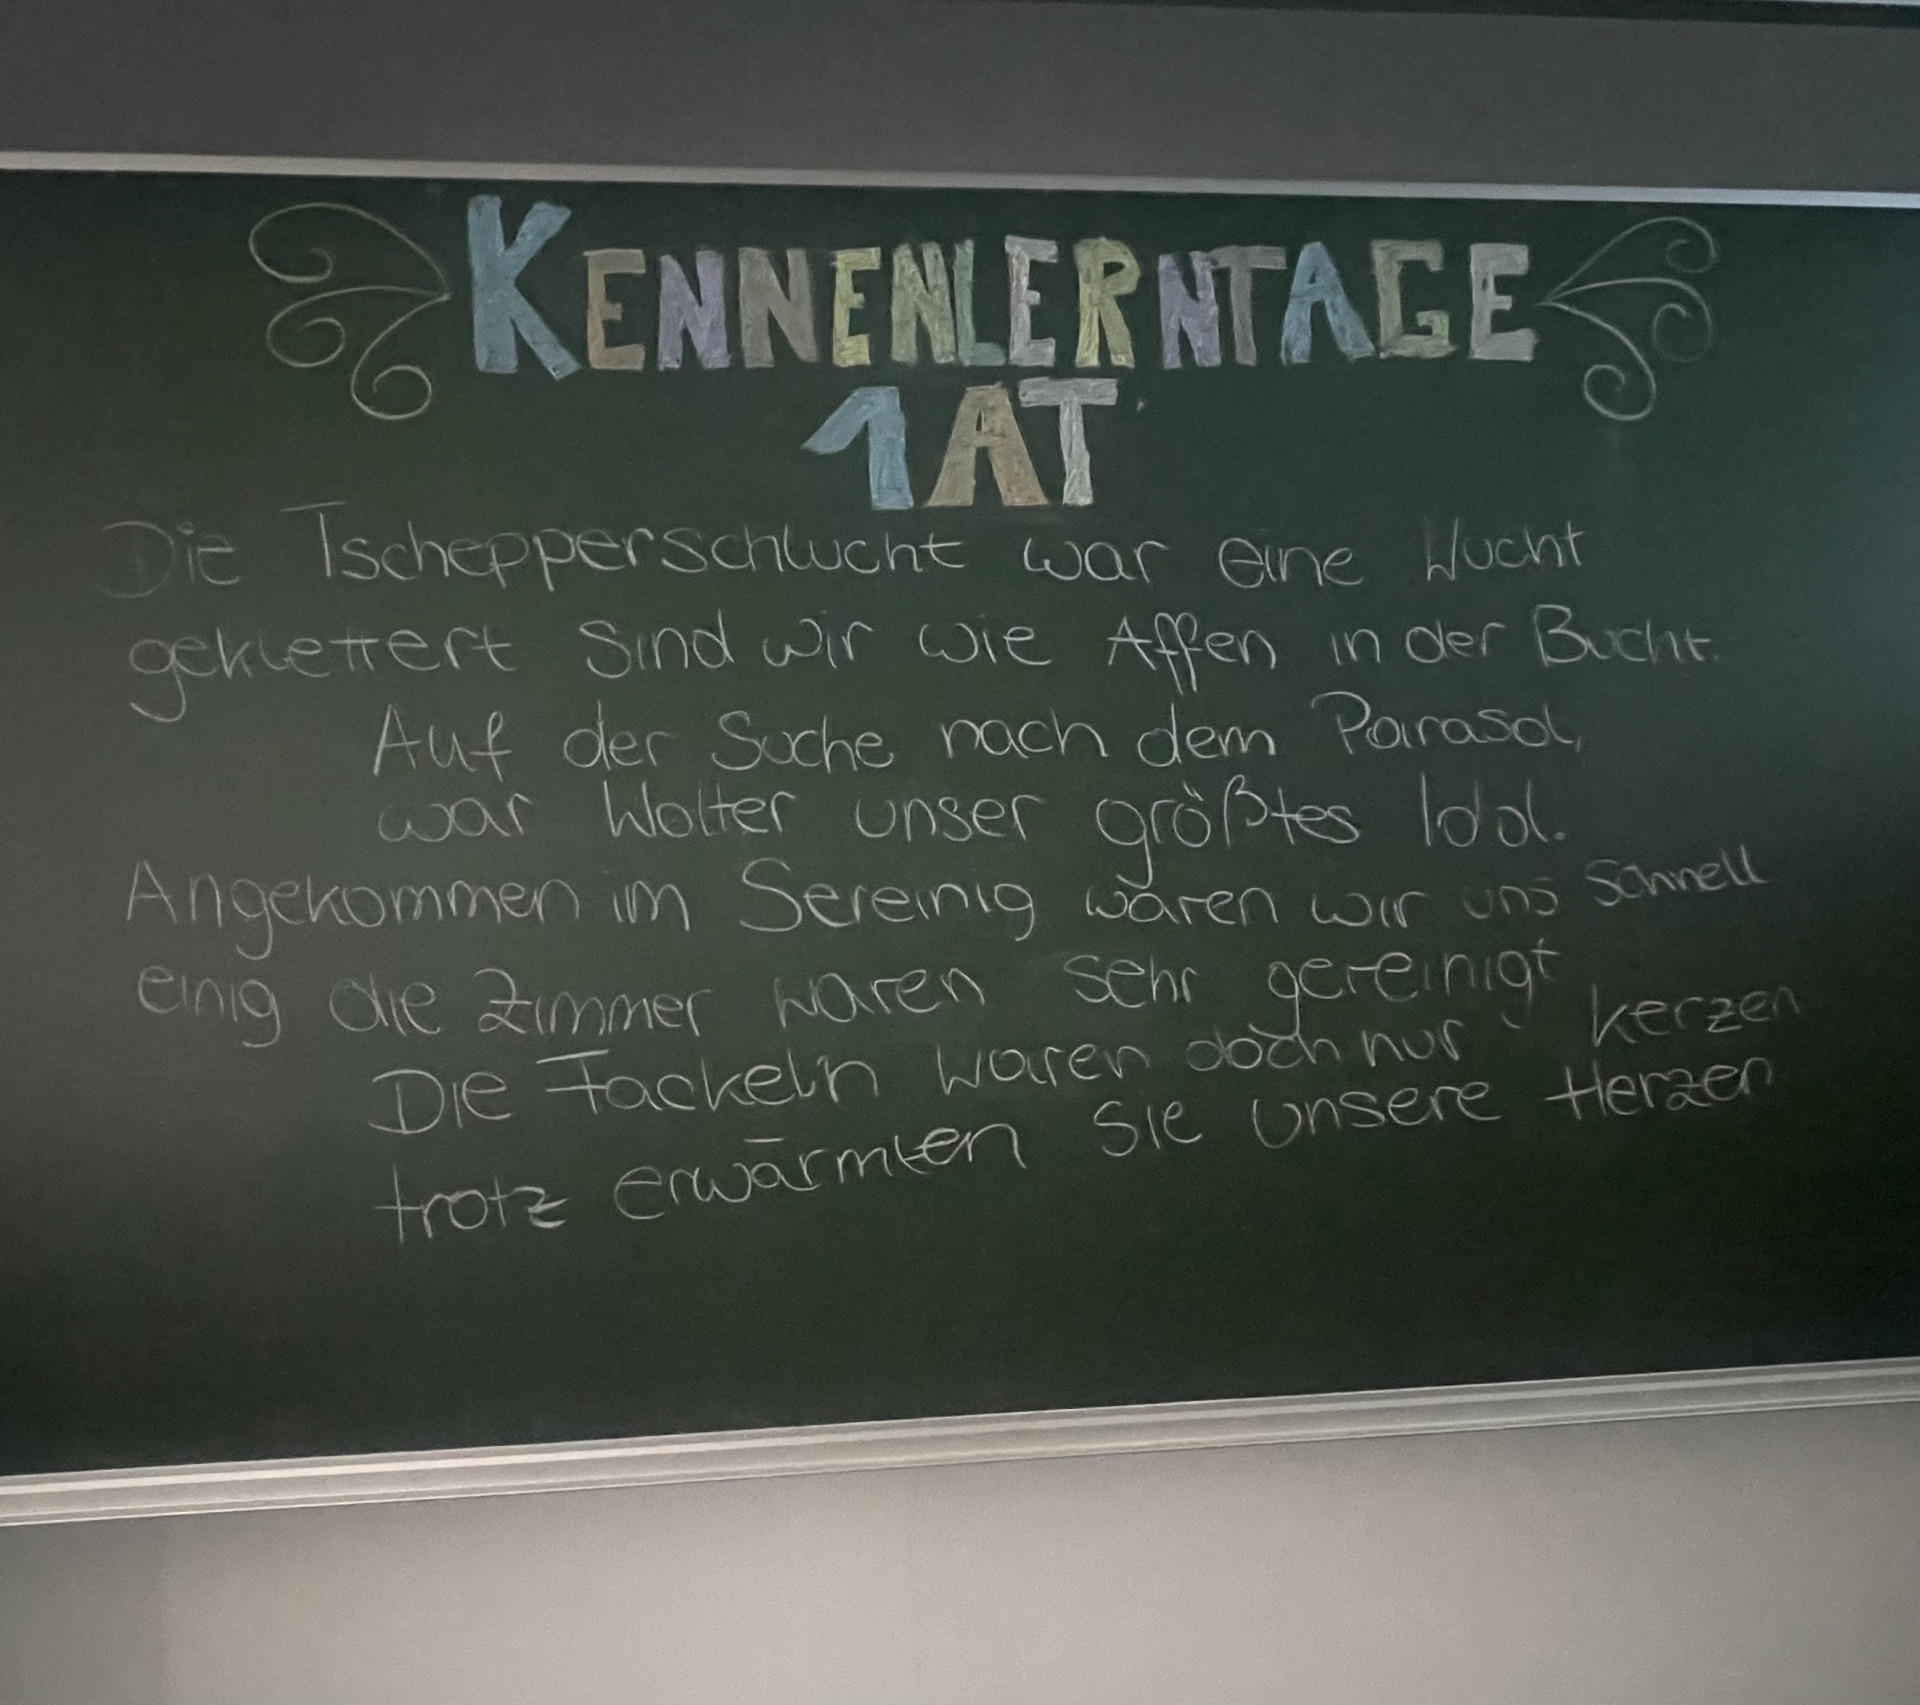 KENNENLERNTAGE
1AT
Die Tschepperschlucht war eine Wucht
geklettert sind wir wie Affen in der Bucht.
Auf der Suche nach dem Parasol,
war Wolter unser größtes Idol.
Angekommen im Sereinig waren wir uns schnell
einig die Zimmer waren sehr gereinigt
Die Fackeln waren doch nur kerzen
trotz erwärmten sie unsere Herzen